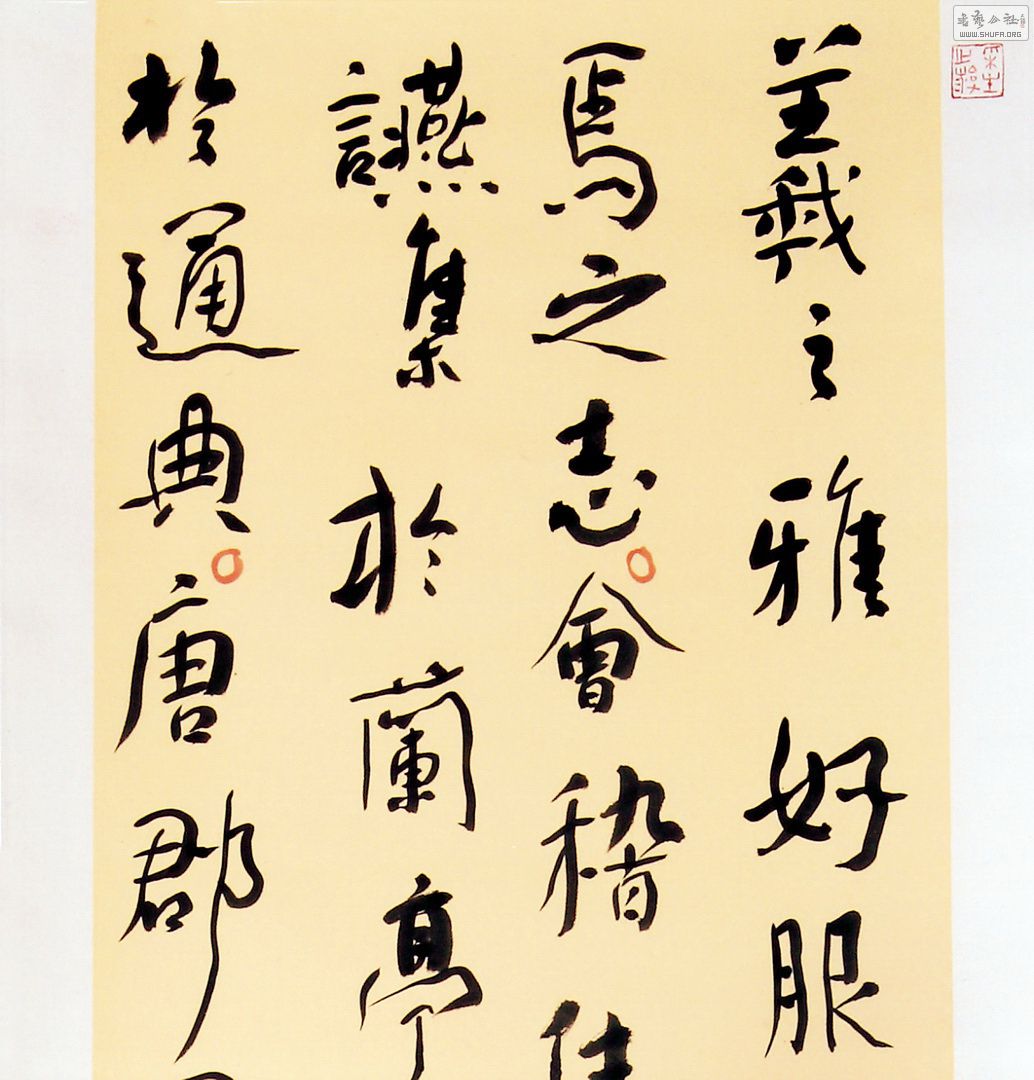 羲之雅好服
焉之志會稽佳
讌集於蘭亭
於通典唐郡
書藝公社
WWW.SHUFA.ORG